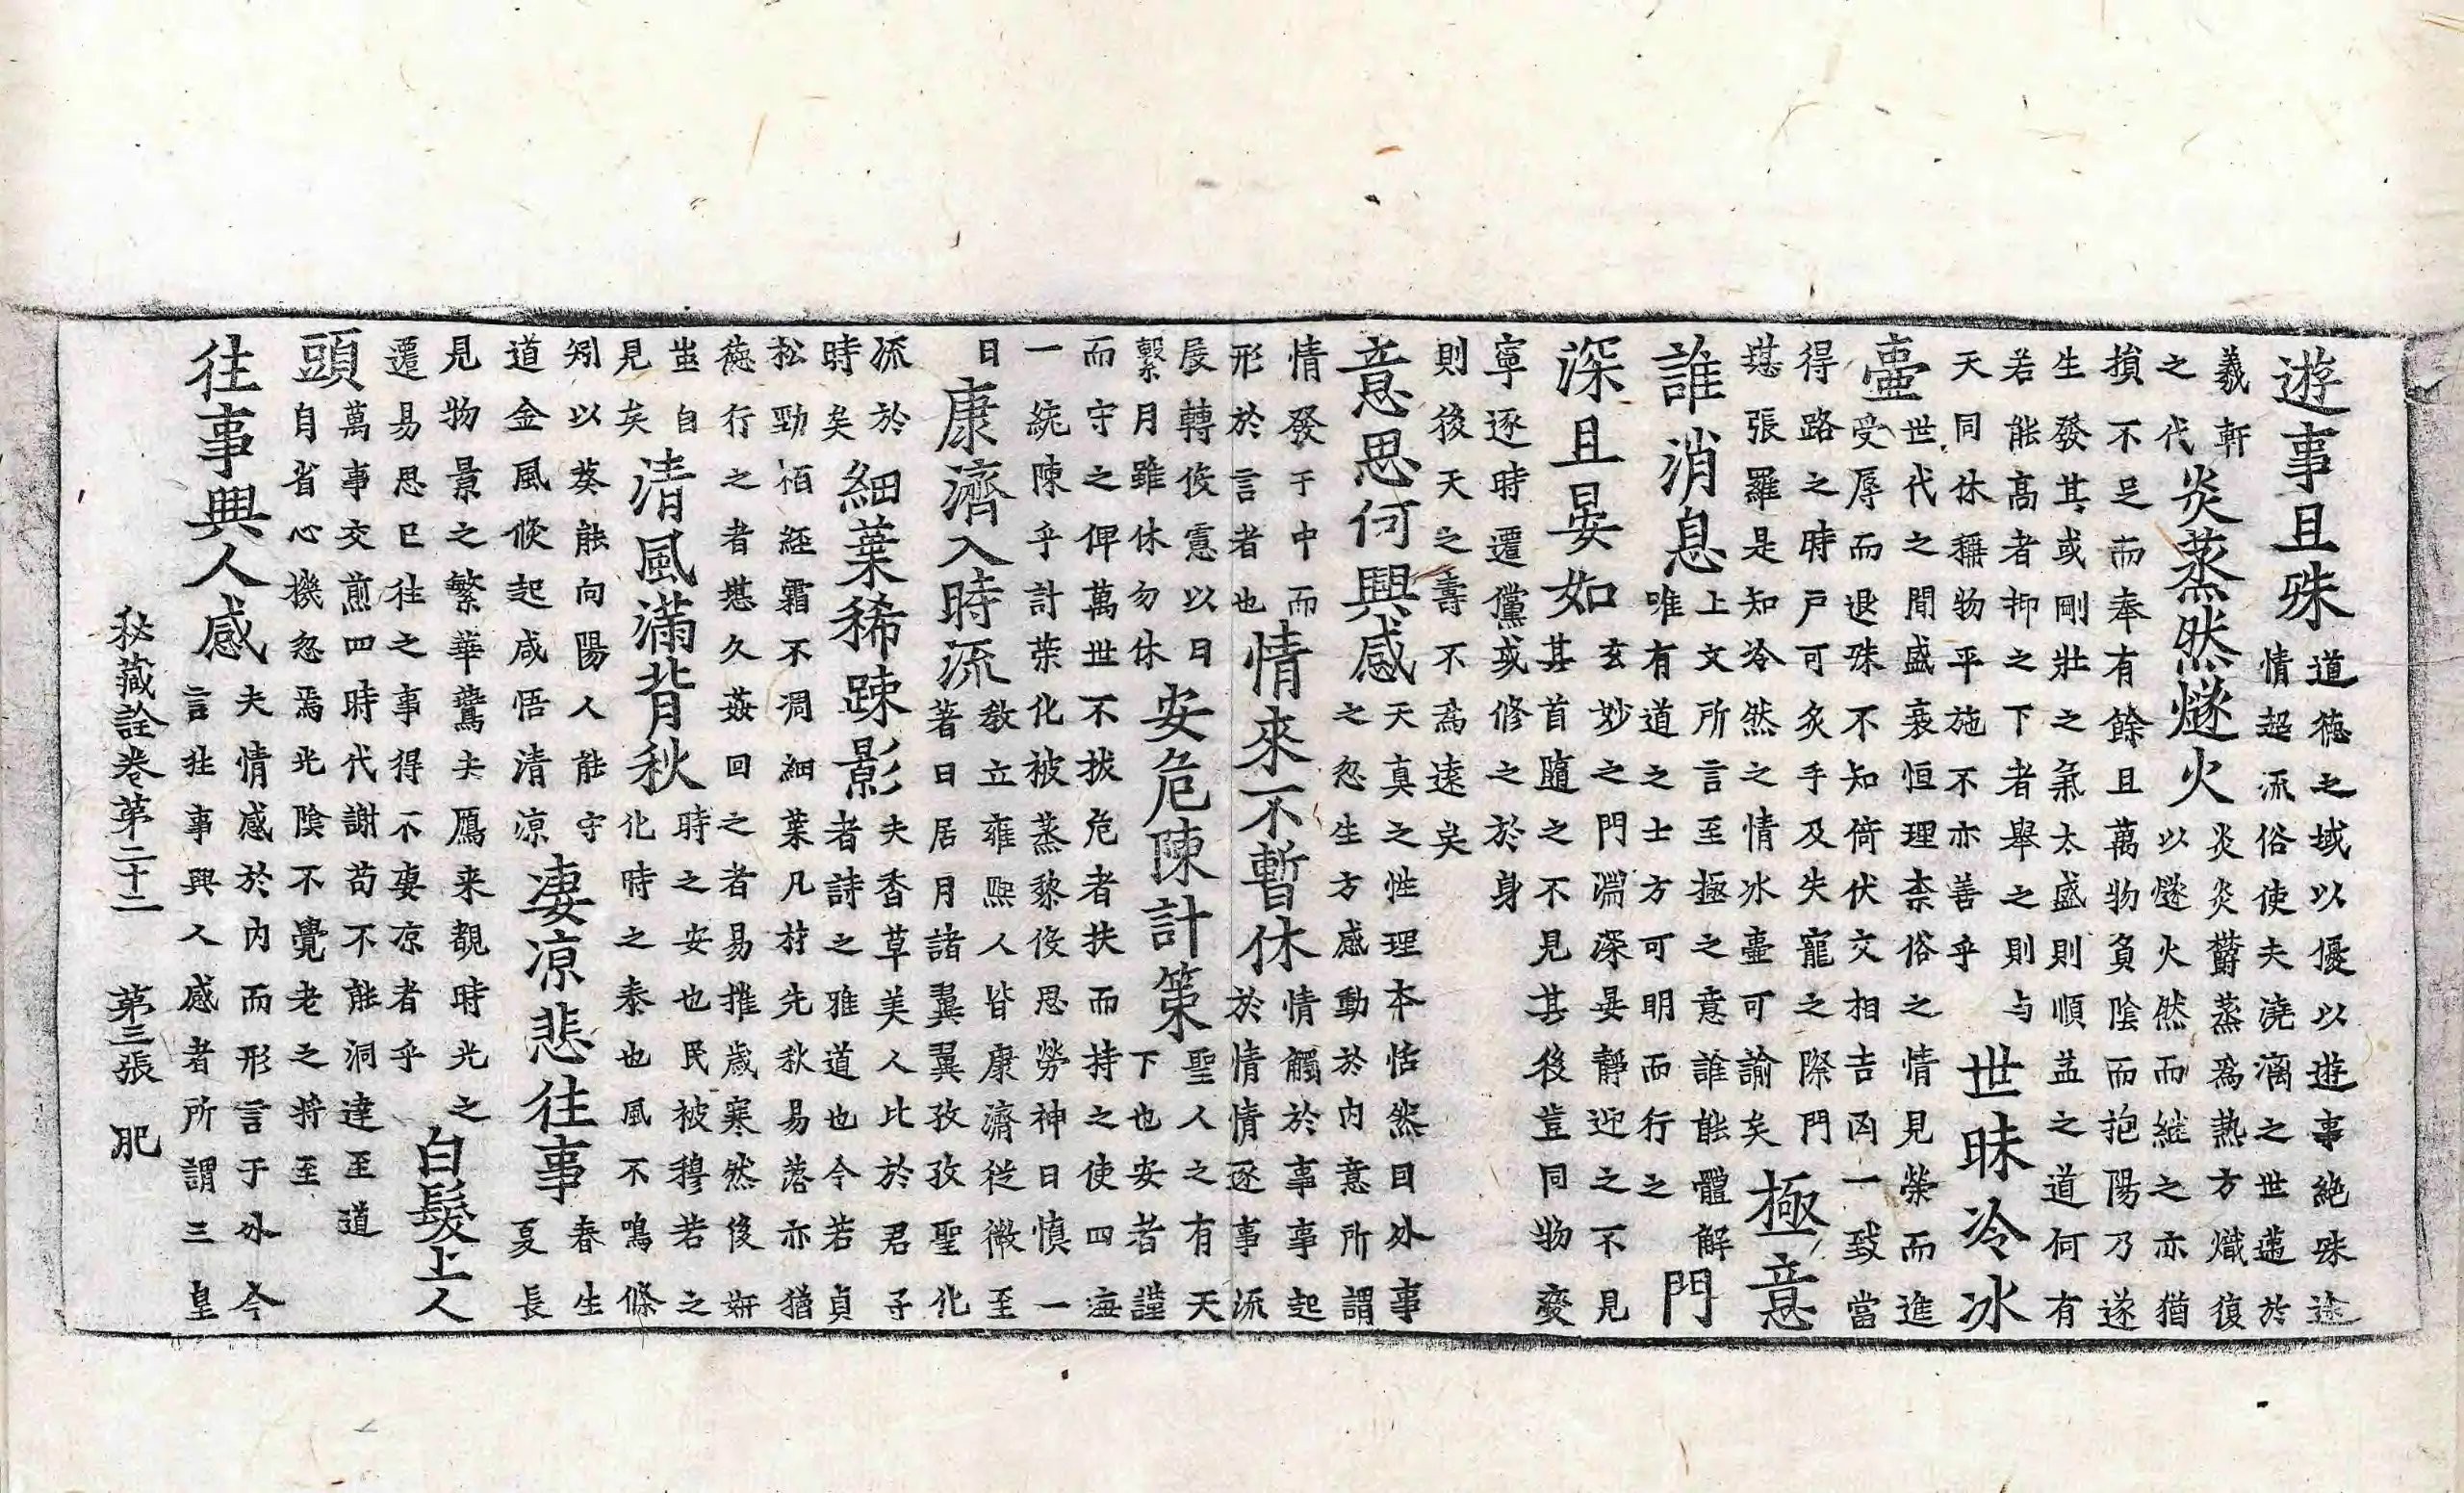 遊事且殊道德之域以優以遊事絶殊途
情超流俗使夫澆漓之世遷於
羲軒
之代
炎蒸然燧火炎炎欝蒸爲熱方熾復
以燧火然而継之亦猶
損不足而奉有餘且萬物負陰而抱陽乃遂
生發其或剛壯之氣太盛則順益之道何有
若能高者抑之下者舉之則与
天同休稱物平施不亦善乎
世昧冷冰
壷世代之間盛衰恒理柰俗之情見榮而進
受辱而退殊不知倚伏交相吉凶一致當
得路之時戶可炙手及失寵之際門
堪張羅是知冷然之情冰壷可諭矣
極意
誰消息上文所言至極之意誰能體解
唯有道之士方可明而行之
門
深且晏如玄妙之門淵深晏靜迎之不見
其首隨之不見其後豈同物變
寧逐時遷儻或修之於身
則後天之壽不爲遠矣
意思何興感天真之性理本恬然因外事
之忽生方感動於內意所謂
情發于中而
形於言者也
情來不暫休情觸於事事起
於情情逐事流
展轉俊憲以日
繫月雖休勿休
安危陳計策聖人之有天
下也安者謹
而守之俾萬世不拔危者扶而持之使四海
一統陳乎計策化被蒸黎役思勞神日慎一
日
康濟入時流敎立雍熈人皆康濟從微至
著日居月諸翼翼孜孜聖化
流於
時矣
細葉稀踈影夫香草美人比於君子
者詩之雅道也今若貞
松勁栢経霜不凋細葉凡材先秋易落亦猶
德行之者堪久姦回之者易摧歲寒然後姸
蚩自
見矣
清風滿背秋時之安也民被穆若之
化時之泰也風不鳴條
矧以葵能向陽人能守
道金風倐起咸悟清凉
凄凉悲往事春生
夏長
見物景之繁華驚夫鴈来覩時光之
遷易思已往之事得不凄凉者乎
白髮上人
頭萬事交煎四時代謝苟不能洞達至道
自省心機忽焉光陰不覺老之將至
往事興人感夫情感於內而形言于外今
言往事興人感者所謂三皇
秘藏詮卷第二十二 第三張 肥